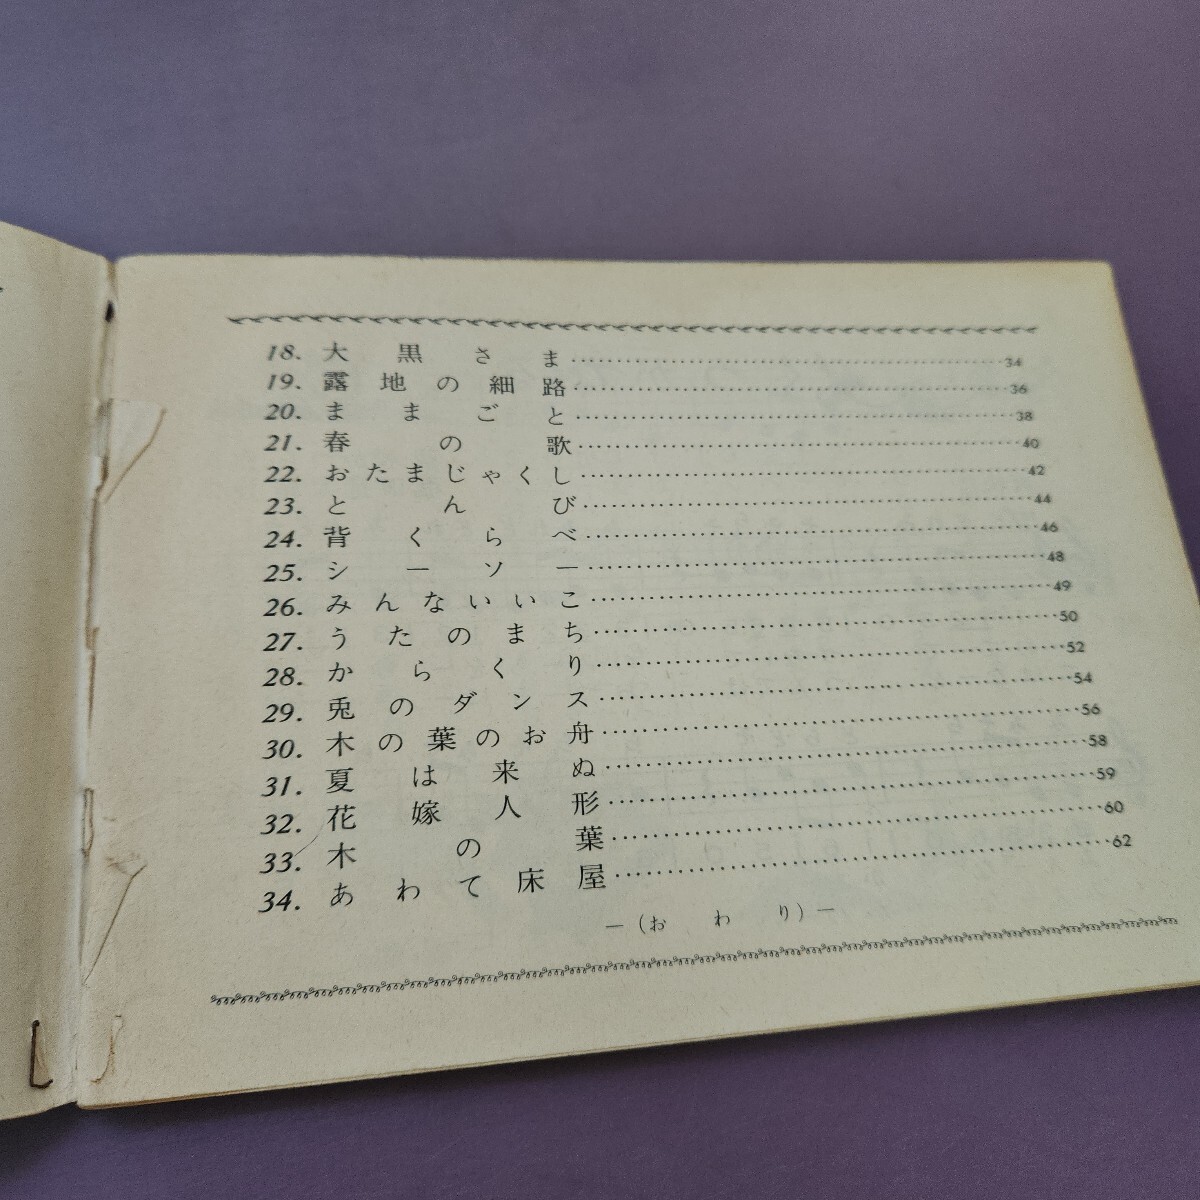 18. 大黒さま……34
19. 露地の細路……36
20. ままごと……38
21. 春の歌……40
22. おたまじゃくし……42
23. とんび……44
24. 背くらべ……46
25. シーソー……48
26. みんないいこ……49
27. うたのまち……50
28. からくり……52
29. 兎のダンス……54
30. 木の葉のお舟……56
31. 夏は来ぬ……58
32. 花嫁人形……59
33. 木の葉……60
34. あわて床屋……62
—(おわり)—